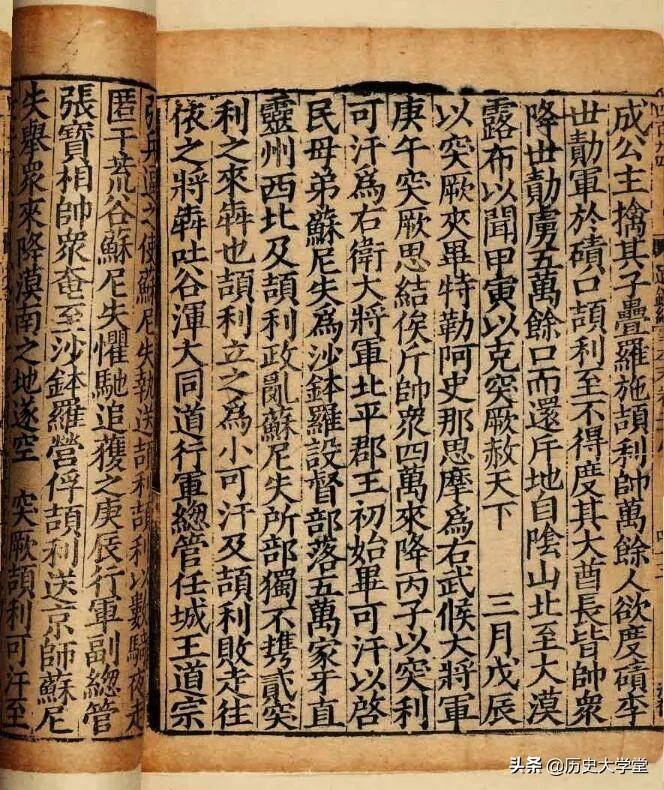 成公主擒其子疊羅施頡利帥萬餘人欲度磧李
世勣軍於磧口頡利至不得度其大酋長皆帥衆
降世勣虜五萬餘口而還斥地自陰山北至大漠
露布以聞甲寅以克突厥赦天下 三月戊辰
以突厥夾畢特勒阿史那思摩爲右武候大將軍
庚午突厥思結俟斤帥衆四萬來降丙子以突利
可汗爲右衛大將軍北平郡王初始畢可汗以啓
民母弟蘇尼失爲沙鉢羅設督部落五萬家牙直
靈州西北及頡利政亂蘇尼失所部獨不攜貳突
利之來犇也頡利立之爲小可汗及頡利敗走往
依之將犇吐谷渾大同道行軍總管任城王道宗
之使蘇尼失執送頡利頡利以數騎夜走
匿于荒谷蘇尼失懼馳追獲之庚辰行軍副總管
張寶相帥衆奄至沙鉢羅營俘頡利送京師蘇尼
失舉衆來降漠南之地遂空 突厥頡利可汗至
头条 @历史大学堂